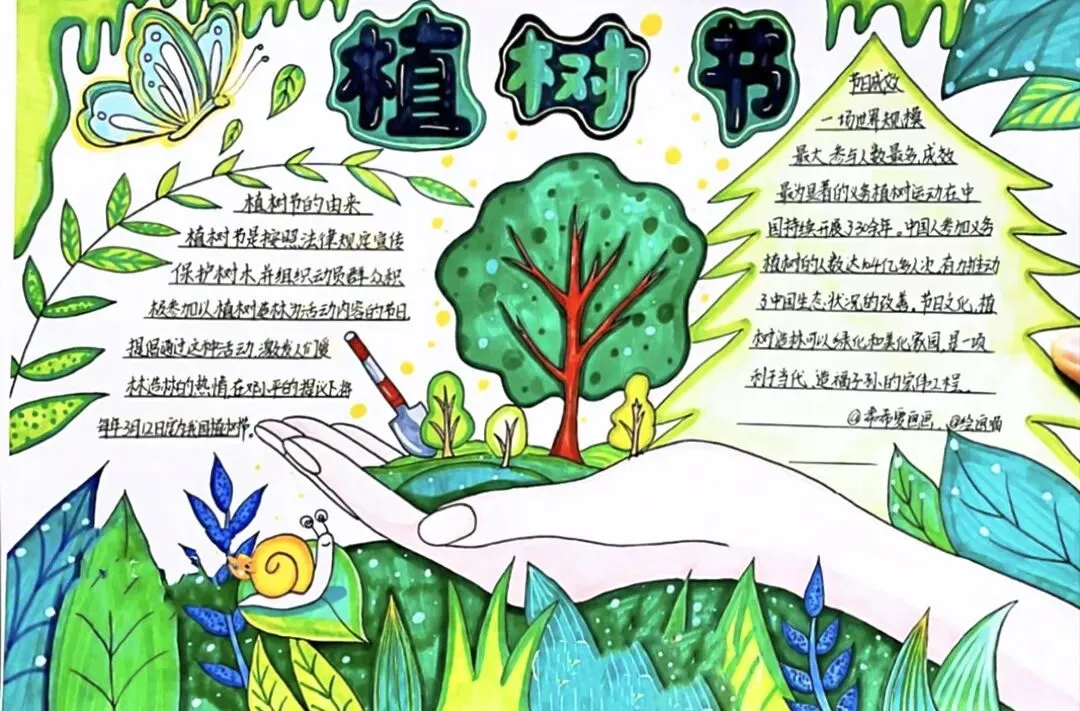 植树节
植树节的由来
植树节是按照法律规定宣传
保护树木并组织动员群众积
极参加以植树造林为活动内容的节日
提倡通过这种活动,激发人们爱
林造林的热情,在邓小平的提议下将
每年3月12日定为我国植树节。
节日成效
一场世界规模
最大,参与人数最多,成效
最为显著的义务植树运动在中
国持续开展了30余年。中国人参加义务
植树的人数达104亿多人次,有力推动
了中国生态状况的改善。节日文化,植
树造林可以绿化和美化家园,是一项
利于当代、造福子孙的宏伟工程。
@希希爱画画 @绘画喵